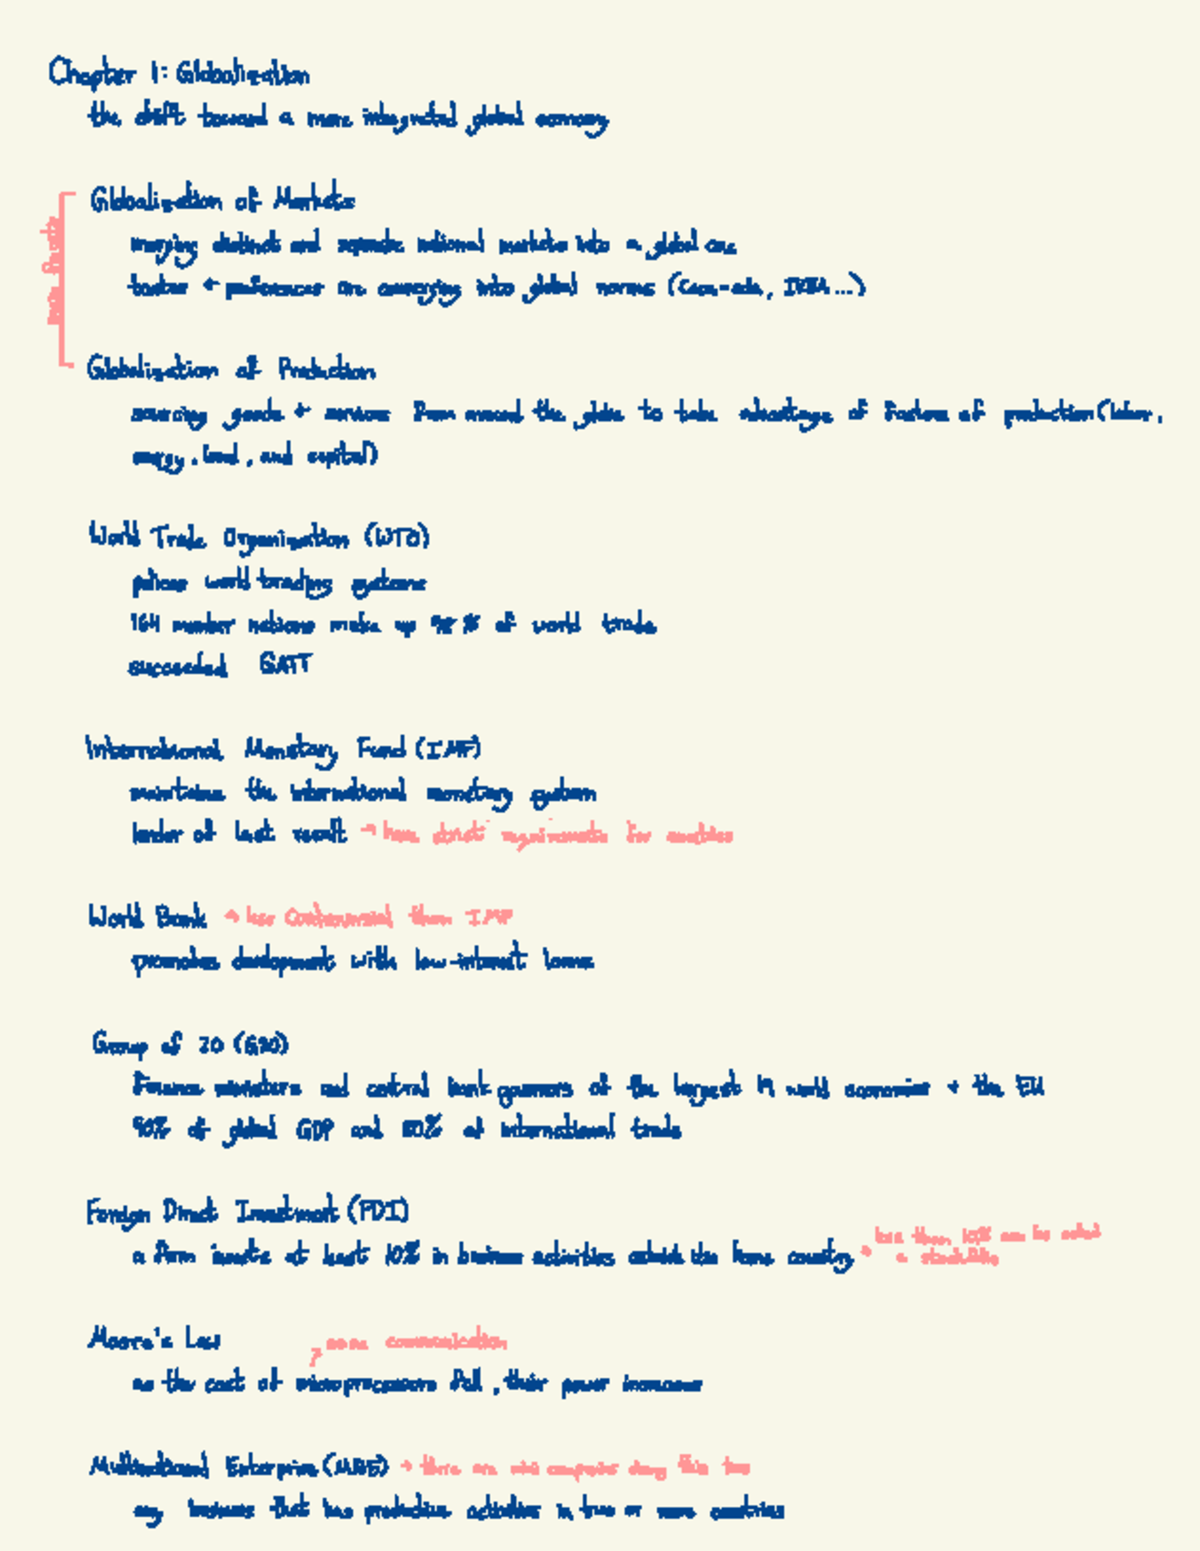 Chapter 1: Globalization
the shift toward a more integrated global economy
Globalization of Markets
merging distinct and separate national markets into a global one
tastes + preferences are converging into global norms (Coca-cola, IKEA...)
Globalization of Production
sourcing goods + services from around the globe to take advantage of factors of production (labor,
energy, land, and capital)
World Trade Organization (WTO)
polices world trading systems
164 member nations make up 98% of world trade
succeeded GATT
International Monetary Fund (IMF)
maintains the international monetary system
lender of last resort → have strict requirements for
World Bank → less controversial than IMF
promotes development with low-interest loans
Group of 20 (G20)
Finance ministers and central bank governors of the largest 19 world economies + the EU
90% of global GDP and 80% of international trade
Foreign Direct Investment (FDI)
less than 10% can be
a
a firm invests at least 10% in business activities outside the home country
Moore's Law
communication
as the cost of microprocessors fall, their power increases
Multinational Enterprise (MNE) → there are mini companies doing this too
any business that has productive activities in two or more countries